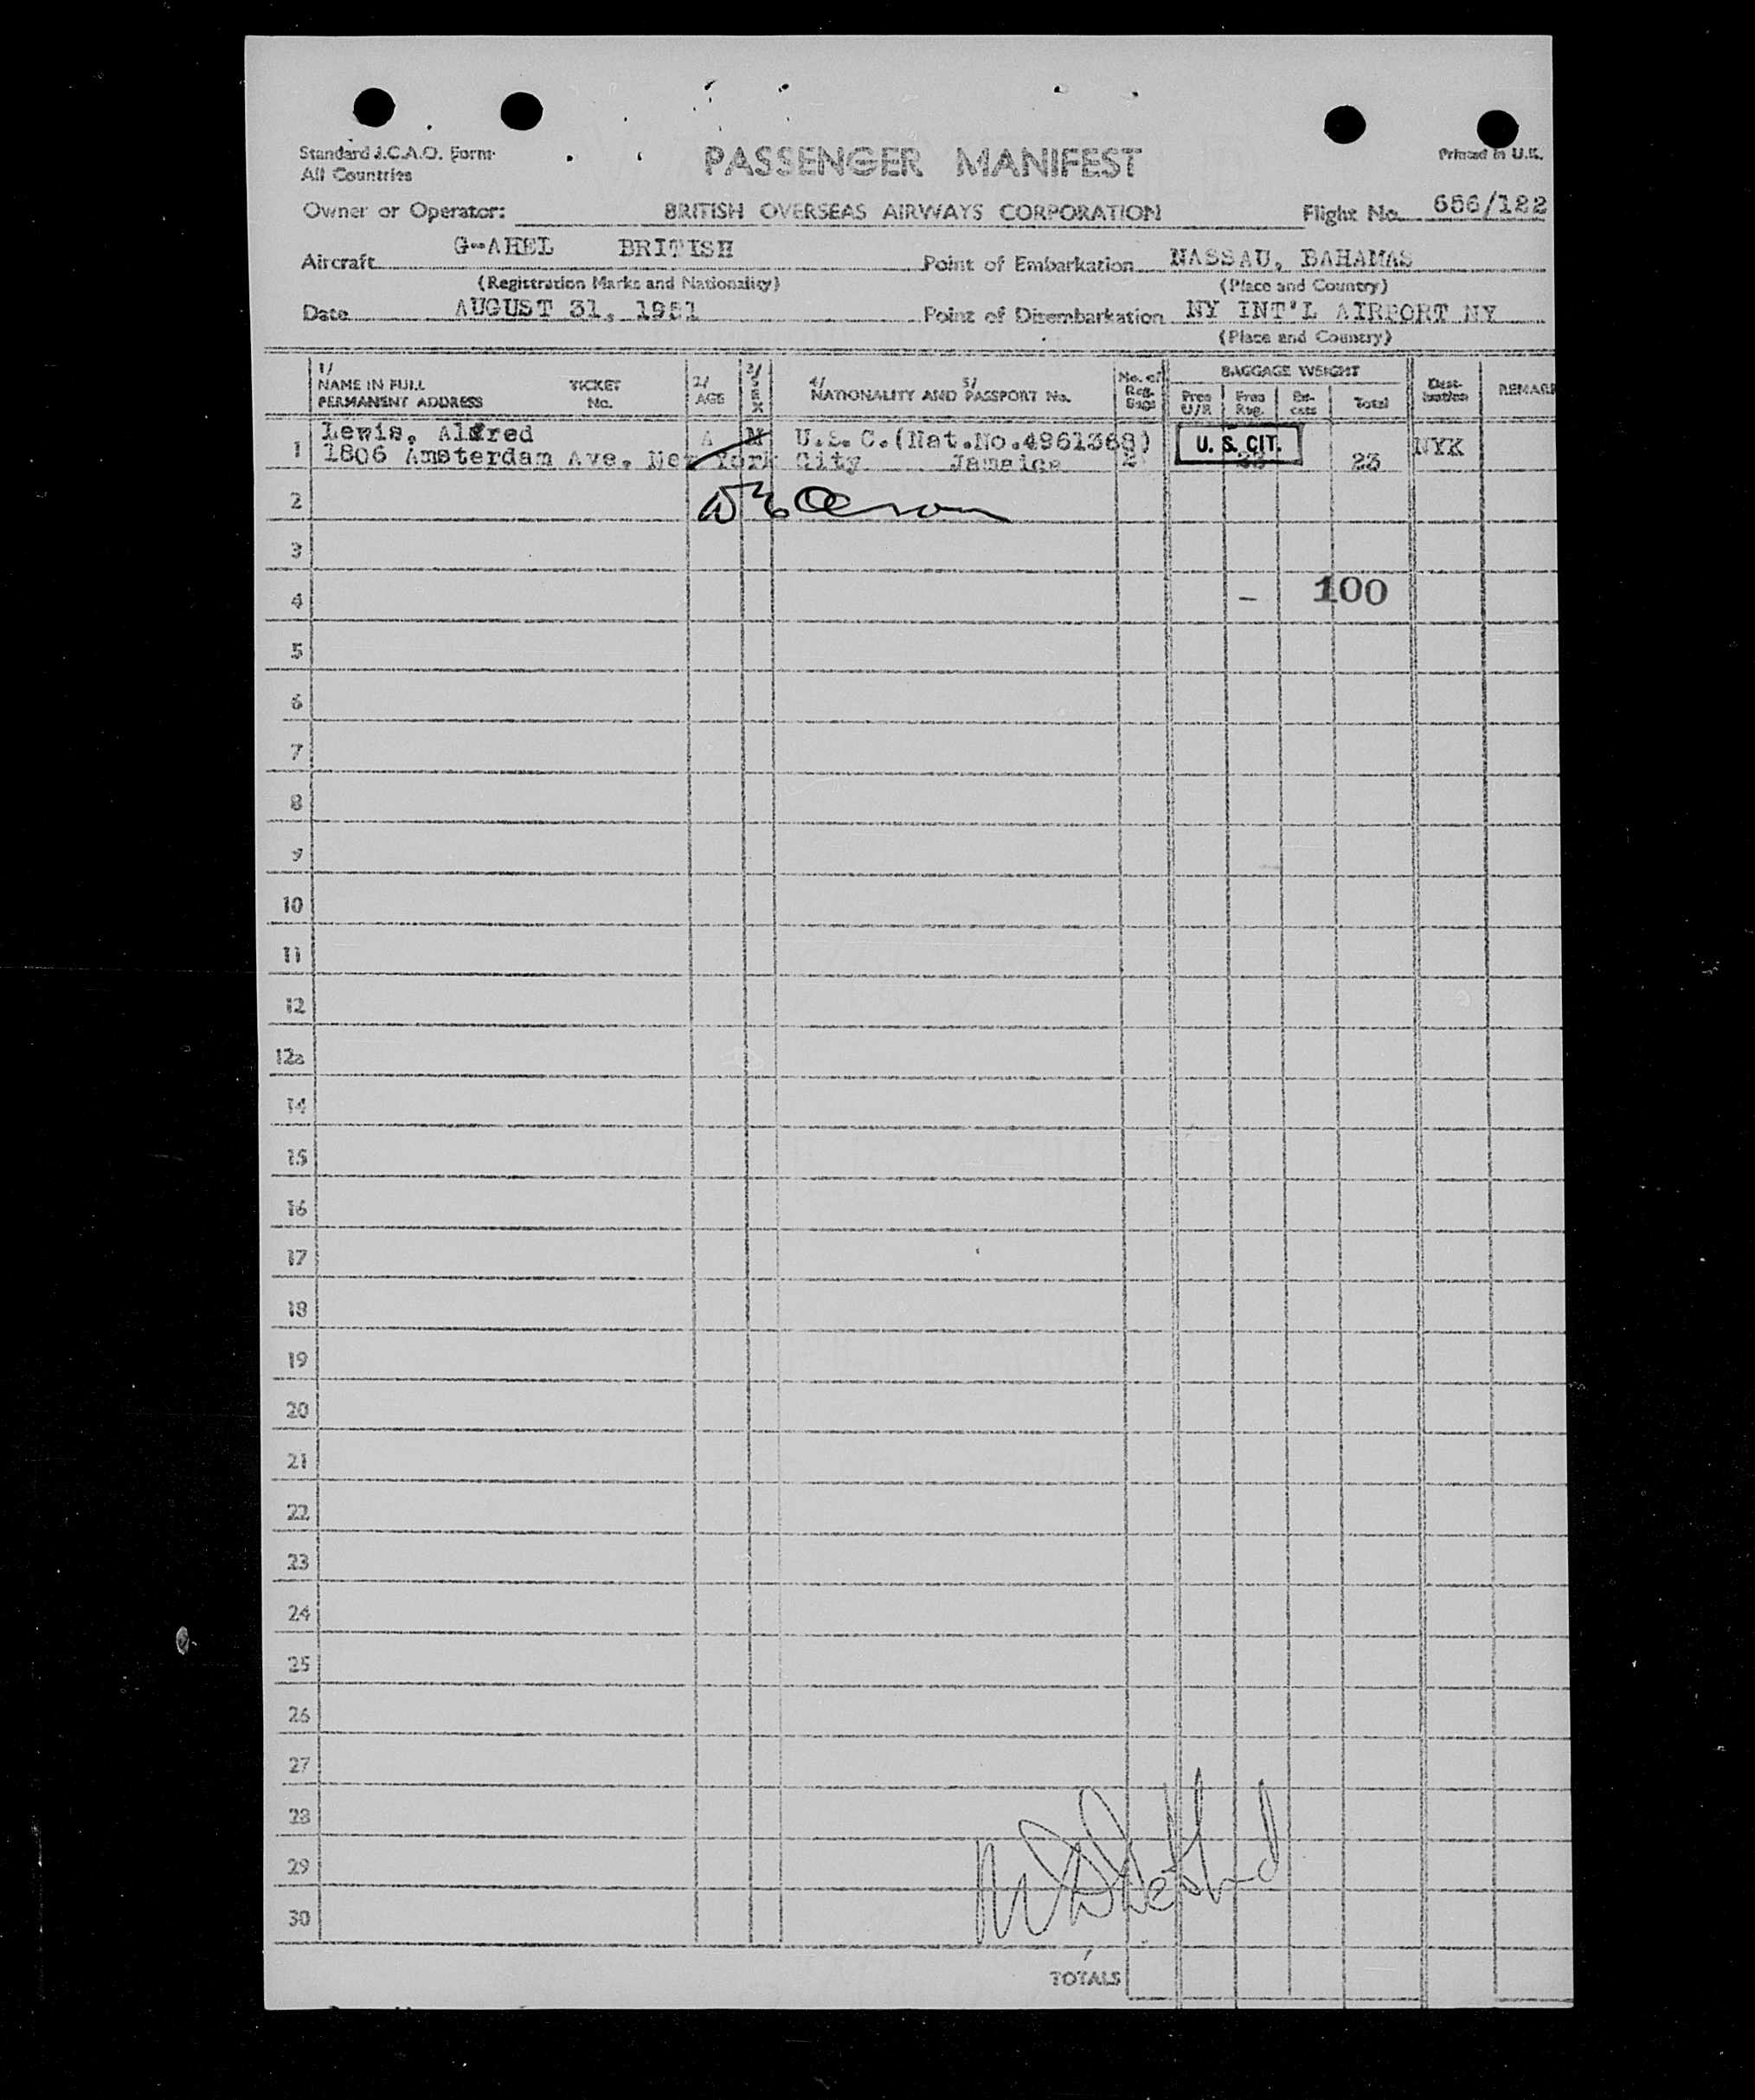 Standard I.C.A.O. Form
All Countries
PASSENGER MANIFEST
Printed in U.K.
Owner or Operator: BRITISH OVERSEAS AIRWAYS CORPORATION Flight No. 656/122
Aircraft G-AHEL BRITISH Point of Embarkation NASSAU, BAHAMAS
(Registration Marks and Nationality) (Place and Country)
Date AUGUST 31, 1951 Point of Disembarkation NY INT'L AIRPORT NY
(Place and Country)
1/ NAME IN FULL PERMANENT ADDRESS TICKET No. 2/ AGE 3/ SEX 4/ NATIONALITY AND 5/ PASSPORT No. No. of Reg. Bags BAGGAGE WEIGHT Free U/R Free Reg. Ex-cess Total Dest-ination REMARK
1 Lewis, Alfred A M U.S.C.(Nat.No.4961368) U. S. CIT. NYK
1806 Amsterdam Ave. New York City Jamaica 2 23
2
3
4 - 100
5
6
7
8
9
10
11
12
12a
14
15
16
17
18
19
20
21
22
23
24
25
26
27
28
29
30
TOTALS